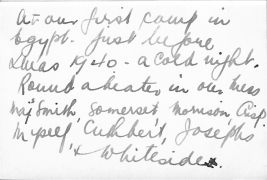 At our first camp in
Egypt. Just before
Xmas 1940 - a cold night.
Round a heater in our mess
Maj Smith, Somerset, Morrison, Crisp,
Myself, Cuthbert, Josephs
& Whiteside.